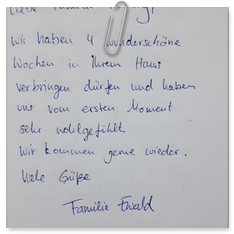 liebe Familie
wir haben 4 wunderschöne
Wochen in Ihrem Haus
verbringen dürfen und haben
uns vom ersten Moment
sehr wohlgefühlt.
Wir kommen gerne wieder.
Viele Grüße
Familie Ewald